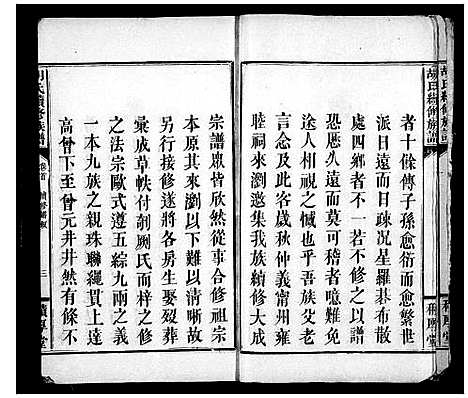 胡氏續修族譜
者十餘傳子孫愈衍而愈繁世
派日遠而日疎况星羅碁布散
處四鄉者不一若不修之以譜
恐愿久遠而莫可稽者噫難免
途人相視之憾也乎吾族父老
言念及此客歲秋仲義甯州雍
睦祠來瀏邀集我族續修大成
宗譜眾皆欣然從事合修祖宗
本原其來瀏以下難以清晰故
另行接修遂將各房生娶歿葬
彙成草帙付剞劂氏而梓之修
之法宗歐式遵五綜九兩之義
一本九族之親珠聯繩貫上達
高曾下至曾元井井然有條不
胡氏續修族譜
卷首
三
積厚堂